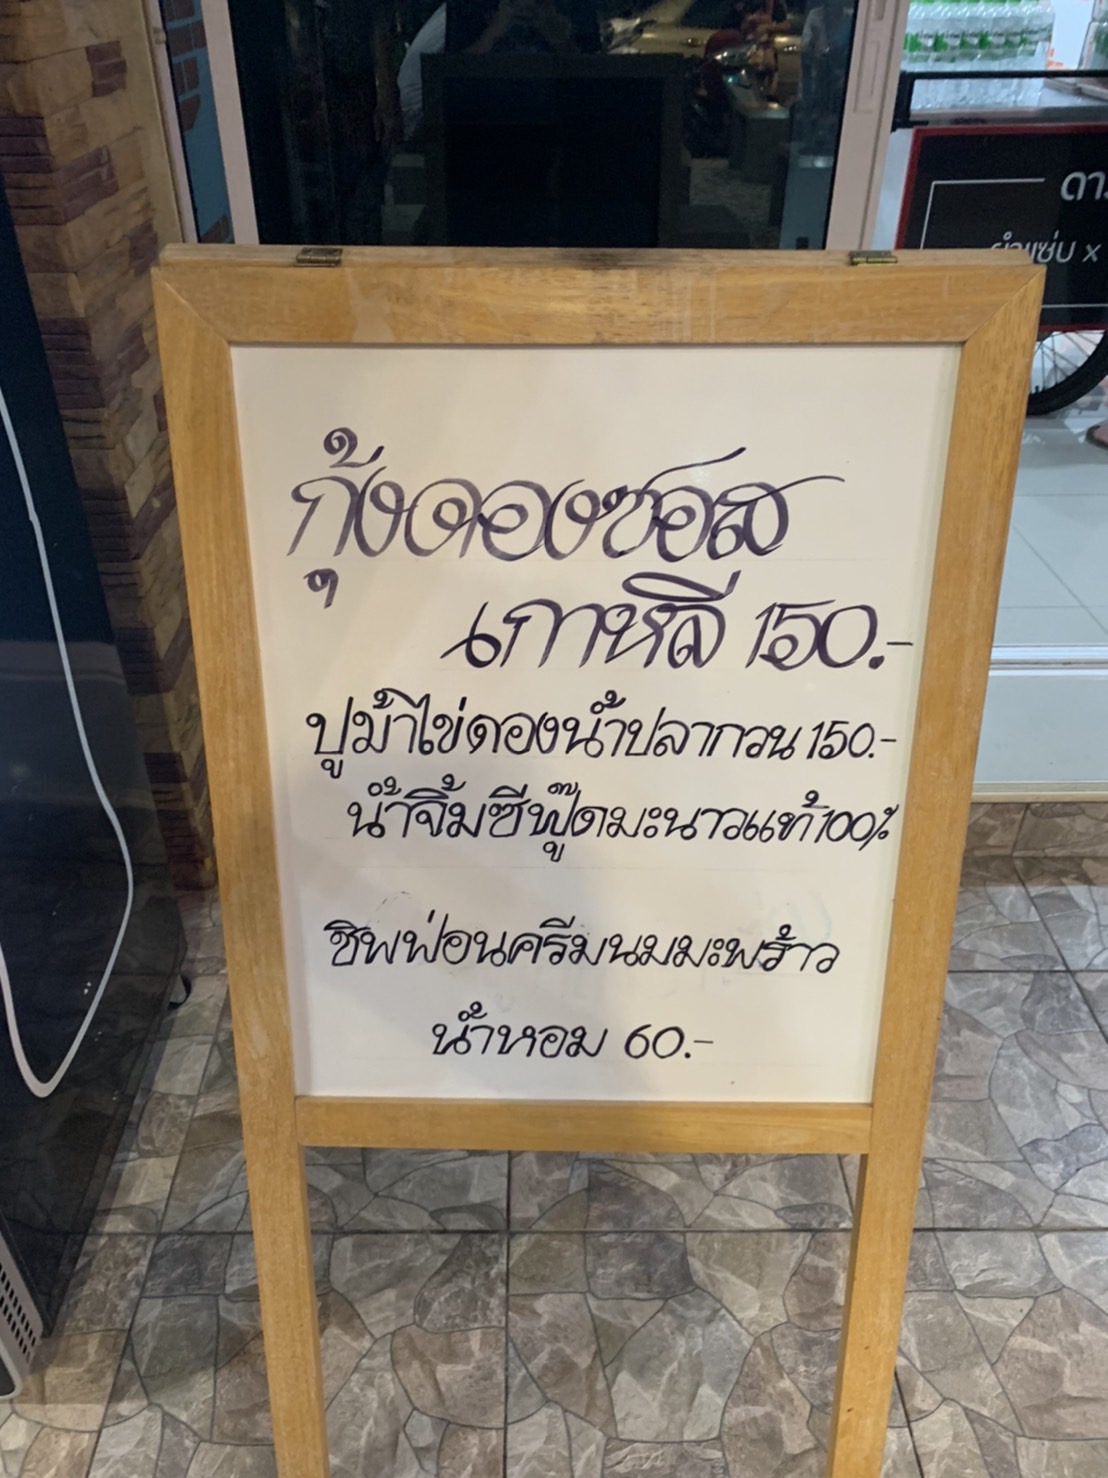 ดา
ยำแซ่บ x
กุ้งดองซอส
เกาหลี 150.-
ปูม้าไข่ดองน้ำปลากวน 150.-
น้ำจิ้มซีฟู๊ดมะนาวแท้ 100%
ชิพฟ่อนครีมนมมะพร้าว
น้ำหอม 60.-